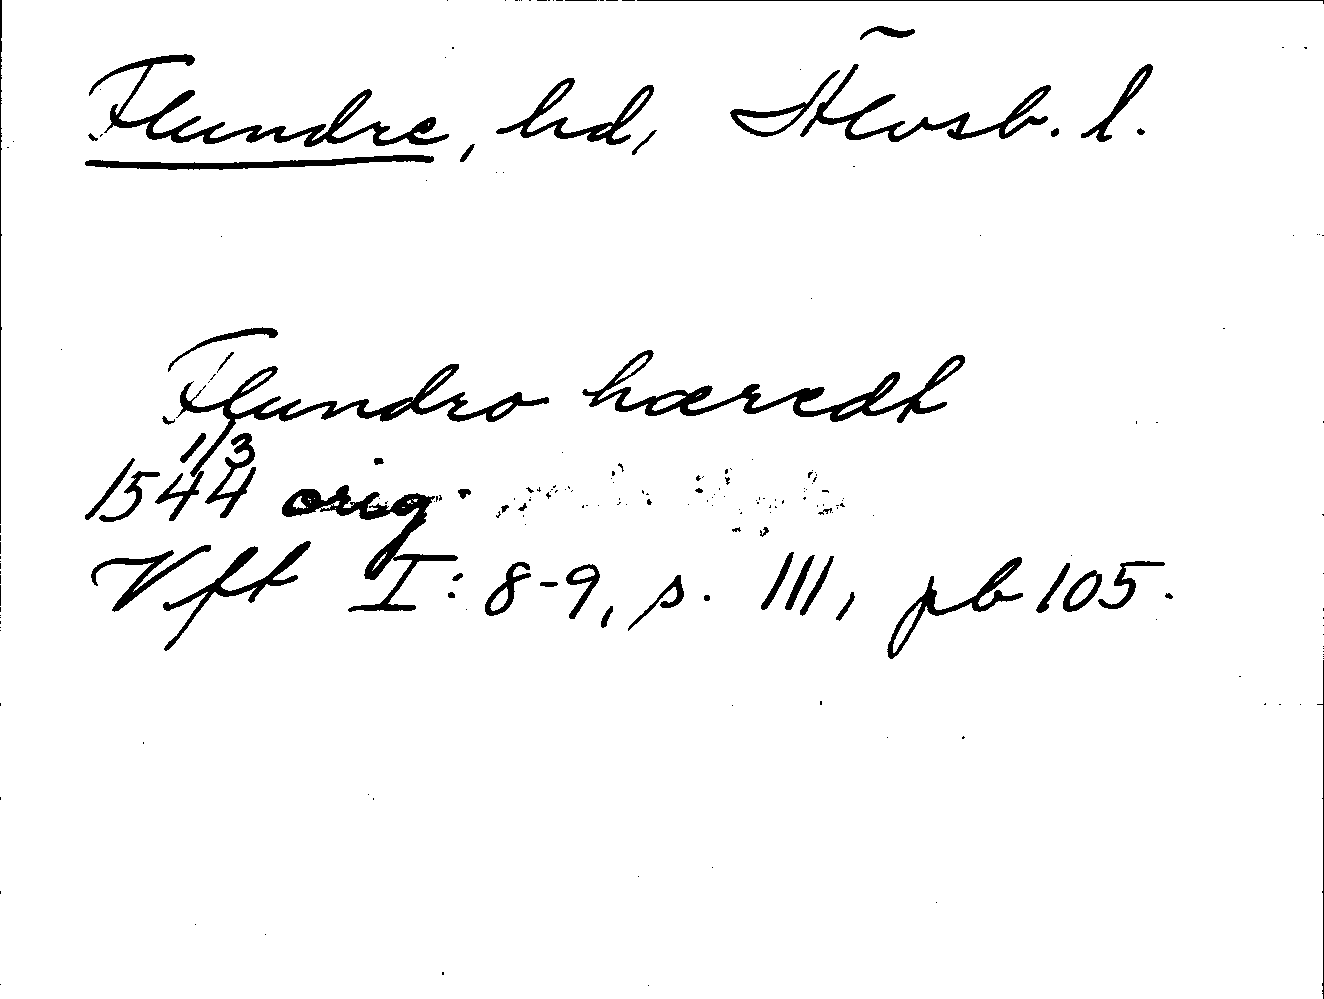 Flundre, hd, Älvsb. l.
Flundro hæredt
1544 1/3 orig.
Vft I: 8-9, s. 111, pb 105.